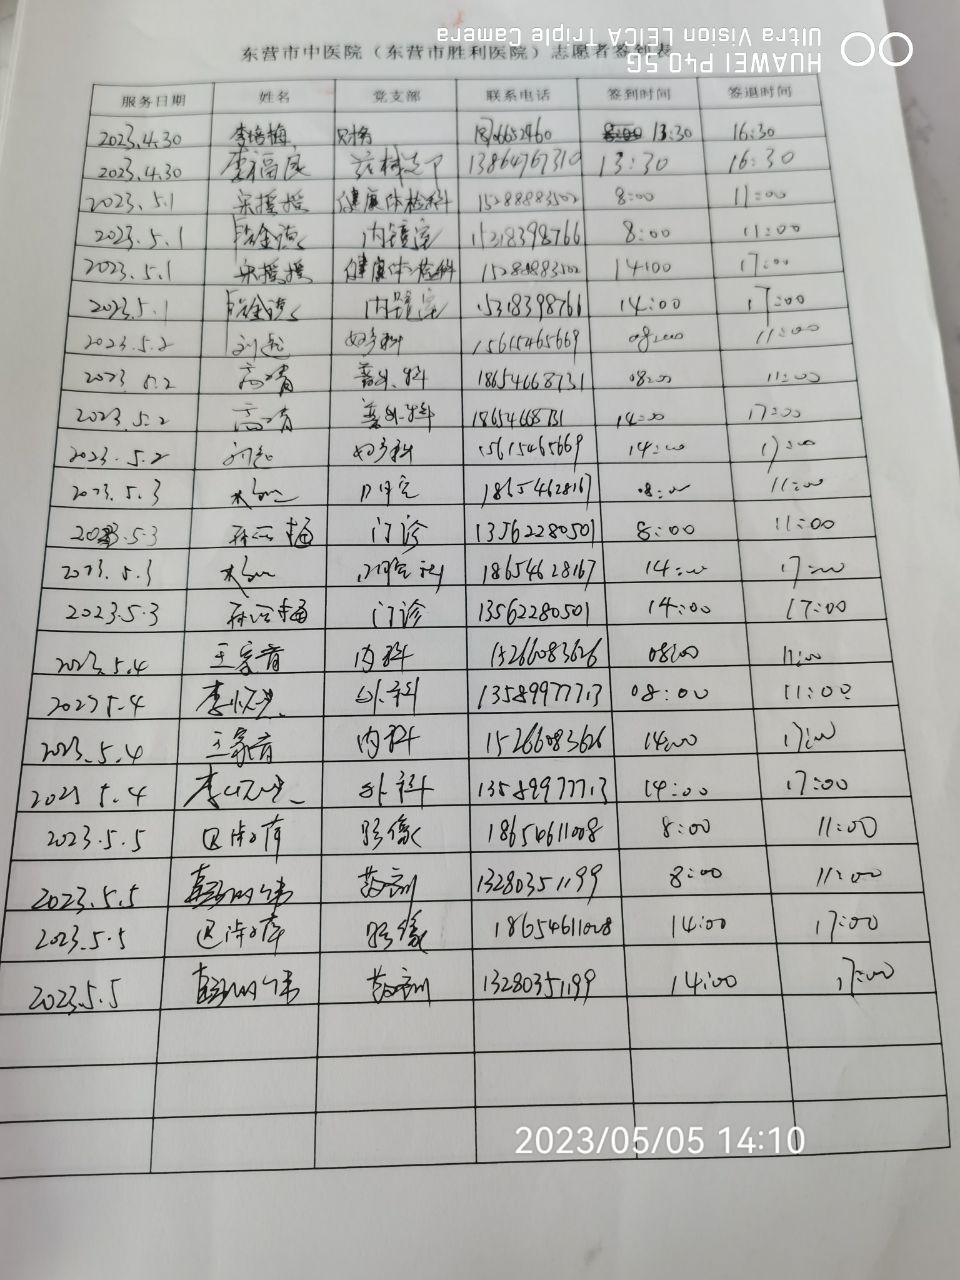 HUAWEI P40 5G
Ultra Vision LEICA Triple Camera
东营市中医院（东营市胜利医院）志愿者签到表
服务日期 姓名 党支部 联系电话 签到时间 签退时间
2023.4.30 李培梅 财务 13:30 16:30
2023.4.30 李福良 13864767310 13:30 16:30
2023.5.1 宋援援 健康体检科 15288883502 8:00 11:00
2023.5.1 内镜室 15318398766 8:00 11:00
2023.5.1 宋援援 健康体检科 15288883502 14:00 17:00
2023.5.1 内镜室 15318398766 14:00 17:00
2023.5.2 妇产科 15615465669 08:00 11:00
2023.5.2 高青 普外科 18654668731 08:00 11:00
2023.5.2 高青 普外科 18654668731 14:00 17:00
2023.5.2 妇产科 15615465669 14:00 17:00
2023.5.3 口腔 18654628167 08:00 11:00
2023.5.3 门诊 13562280501 8:00 11:00
2023.5.3 口腔科 18654628167 14:00 17:00
2023.5.3 门诊 13562280501 14:00 17:00
2023.5.4 内科 15266083626 08:00 11:00
2023.5.4 外科 13589977713 08:00 11:00
2023.5.4 内科 15266083626 14:00 17:00
2023.5.4 外科 13589977713 14:00 17:00
2023.5.5 影像 18654611008 8:00 11:00
2023.5.5 13280351199 8:00 11:00
2023.5.5 影像 18654611008 14:00 17:00
2023.5.5 13280351199 14:00 17:00
2023/05/05 14:10